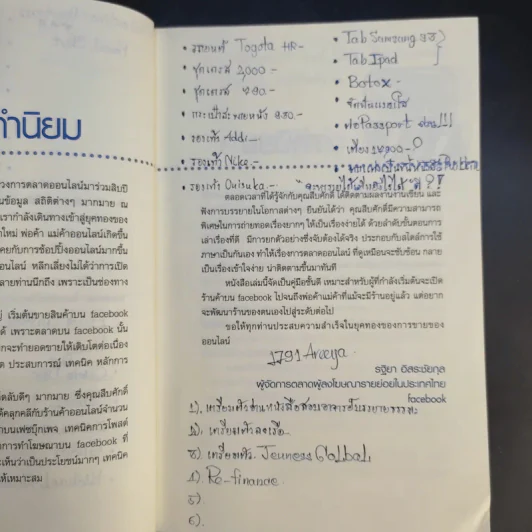 คำนิยม
วงการตลาดออนไลน์มาร่วมสิบปี
นข้อมูล สถิติต่างๆ มากมาย ณ
เรากำลังเดินทางเข้าสู่ยุคทองของ
าใหม่ พ่อค้า แม่ค้าออนไลน์เกิดขึ้น
คยกับการช้อปปิ้งออนไลน์มากขึ้น
อนไลน์ หลีกเลี่ยงไม่ได้ว่าการเปิด
ลายท่านนึกถึง เพราะเป็นช่องทาง
ญ่ เริ่มต้นขายสินค้าบน facebook
ด้ เพราะตลาดบน facebook นั้น
กจะทำยอดขายให้เติบโตต่อเนื่อง
ด ประสบการณ์ เทคนิค หลักการ
ดลับดีๆ มากมาย ซึ่งคุณสืบศักดิ์
ด้คลุกคลีกับร้านค้าออนไลน์จำนวน
บนเฟซบุ๊กเพจ เทคนิคการโพสต์
การทำโฆษณาบน facebook ที่
ะเห็นว่าเป็นประโยชน์มากๆ เทคนิค
ให้เหมาะสม
• รถยนต์ Toyota HR-
• ชุดเดรส 2,000 -
• ชุดเดรส 790 -
• กระเป๋าสะพายหนัง 950.-
• รองเท้า Addi.-
• รองเท้า Nike.-
• รองเท้า Onisuka.-
• Tab Samsung
• Tab Ipad
• Botox -
• Passport !!!
ตลอดเวลาที่ได้รู้จักกับคุณสืบศักดิ์ ได้ติดตามผลงานงานเขียน และ
ฟังการบรรยายในโอกาสต่างๆ ยืนยันได้ว่า คุณสืบศักดิ์มีความสามารถ
พิเศษในการถ่ายทอดเรื่องยากๆ ให้เป็นเรื่องง่ายได้ ด้วยลำดับขั้นตอนการ
เล่าเรื่องที่ดี มีการยกตัวอย่างซึ่งจับต้องได้จริง ประกอบกับสไตล์การใช้
ภาษาเป็นกันเอง ทำให้เรื่องการตลาดออนไลน์ ที่ดูเหมือนจะซับซ้อน กลาย
เป็นเรื่องเข้าใจง่าย น่าติดตามขึ้นมาทันที
หนังสือเล่มนี้จัดเป็นคู่มือชั้นดี เหมาะสำหรับผู้ที่กำลังเริ่มต้นจะเปิด
ร้านค้าบน facebook ไปจนถึงพ่อค้าแม่ค้าที่แม้จะมีร้านอยู่แล้ว แต่อยาก
จะพัฒนาร้านของตนเองไปสู่ระดับต่อไป
ขอให้ทุกท่านประสบความสำเร็จในยุคทองของการขายของ
ออนไลน์
1791 Areeya.
รฐิยา อิสระชัยกุล
ผู้จัดการตลาดผู้ลงโฆษณารายย่อยในประเทศไทย
facebook
3). เตรียมตัว Jeuness Galbal,
4) Re-finance.
5).
6).